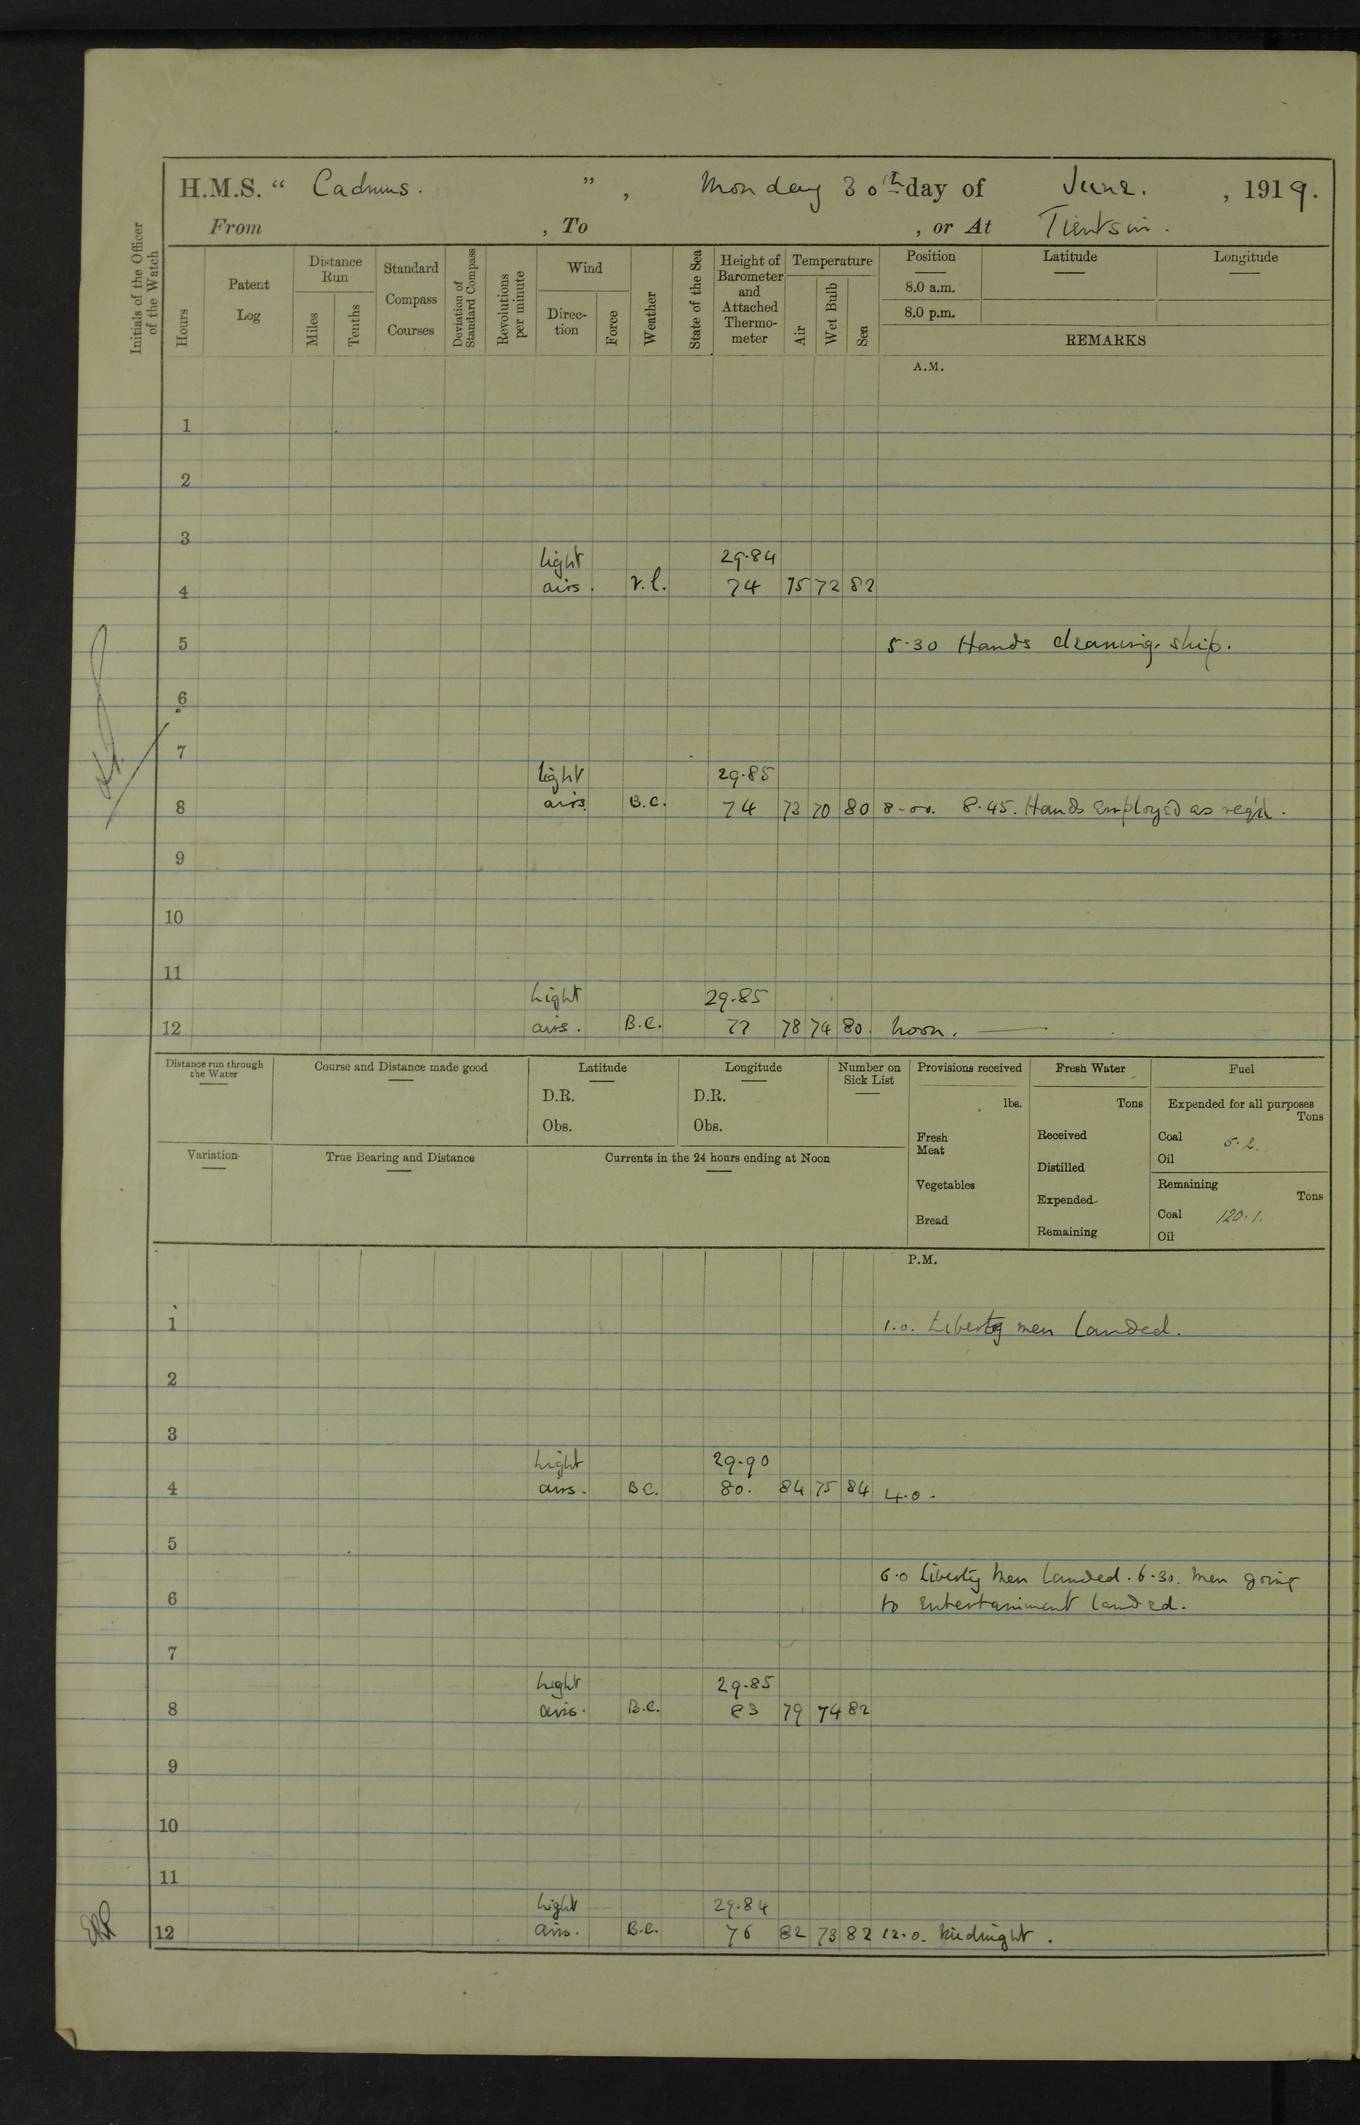 H.M.S. “ Cadmus. ” , Monday 30th day of June. , 1919.
From , To , or At Tientsin.
Initials of the Officer of the Watch
Hours
Patent Log
Distance Run
Miles
Tenths
Standard Compass Courses
Deviation of Standard Compass
Revolutions per minute
Wind
Direction
Force
Weather
State of the Sea
Height of Barometer and Attached Thermometer
Temperature
Air
Wet Bulb
Sea
Position Latitude Longitude
8.0 a.m.
8.0 p.m.
REMARKS
A.M.
1
2
3
light 29.84
4 airs. r.l. 74 75 72 82
5 5.30 Hands cleaning ship.
6
7
light 29.85
8 airs B.C. 74 73 70 80 8-00. 8.45. Hands employed as req'd.
9
10
11
Light 29.85
12 airs. B.C. 77 78 74 80. Noon.
Distance run through the Water
Course and Distance made good
Latitude
D.R.
Obs.
Longitude
D.R.
Obs.
Number on Sick List
Provisions received
lbs.
Fresh Meat
Vegetables
Bread
Fresh Water
Tons
Received
Distilled
Expended
Remaining
Fuel
Expended for all purposes
Tons
Coal 5.2.
Oil
Remaining
Tons
Coal 120.1.
Oil
Variation
True Bearing and Distance
Currents in the 24 hours ending at Noon
P.M.
1 1.0. Liberty men landed.
2
3
Light 29.90
4 airs. BC. 80. 84 75 84 4.0.
5
6.0 Liberty Men landed. 6.30. Men going
6 to Entertainment landed.
7
Light 29.85
8 airs. B.C. 83 79 74 82
9
10
11
Light 29.84
12 airs. B.C. 76 82 73 82 12.0. Midnight.